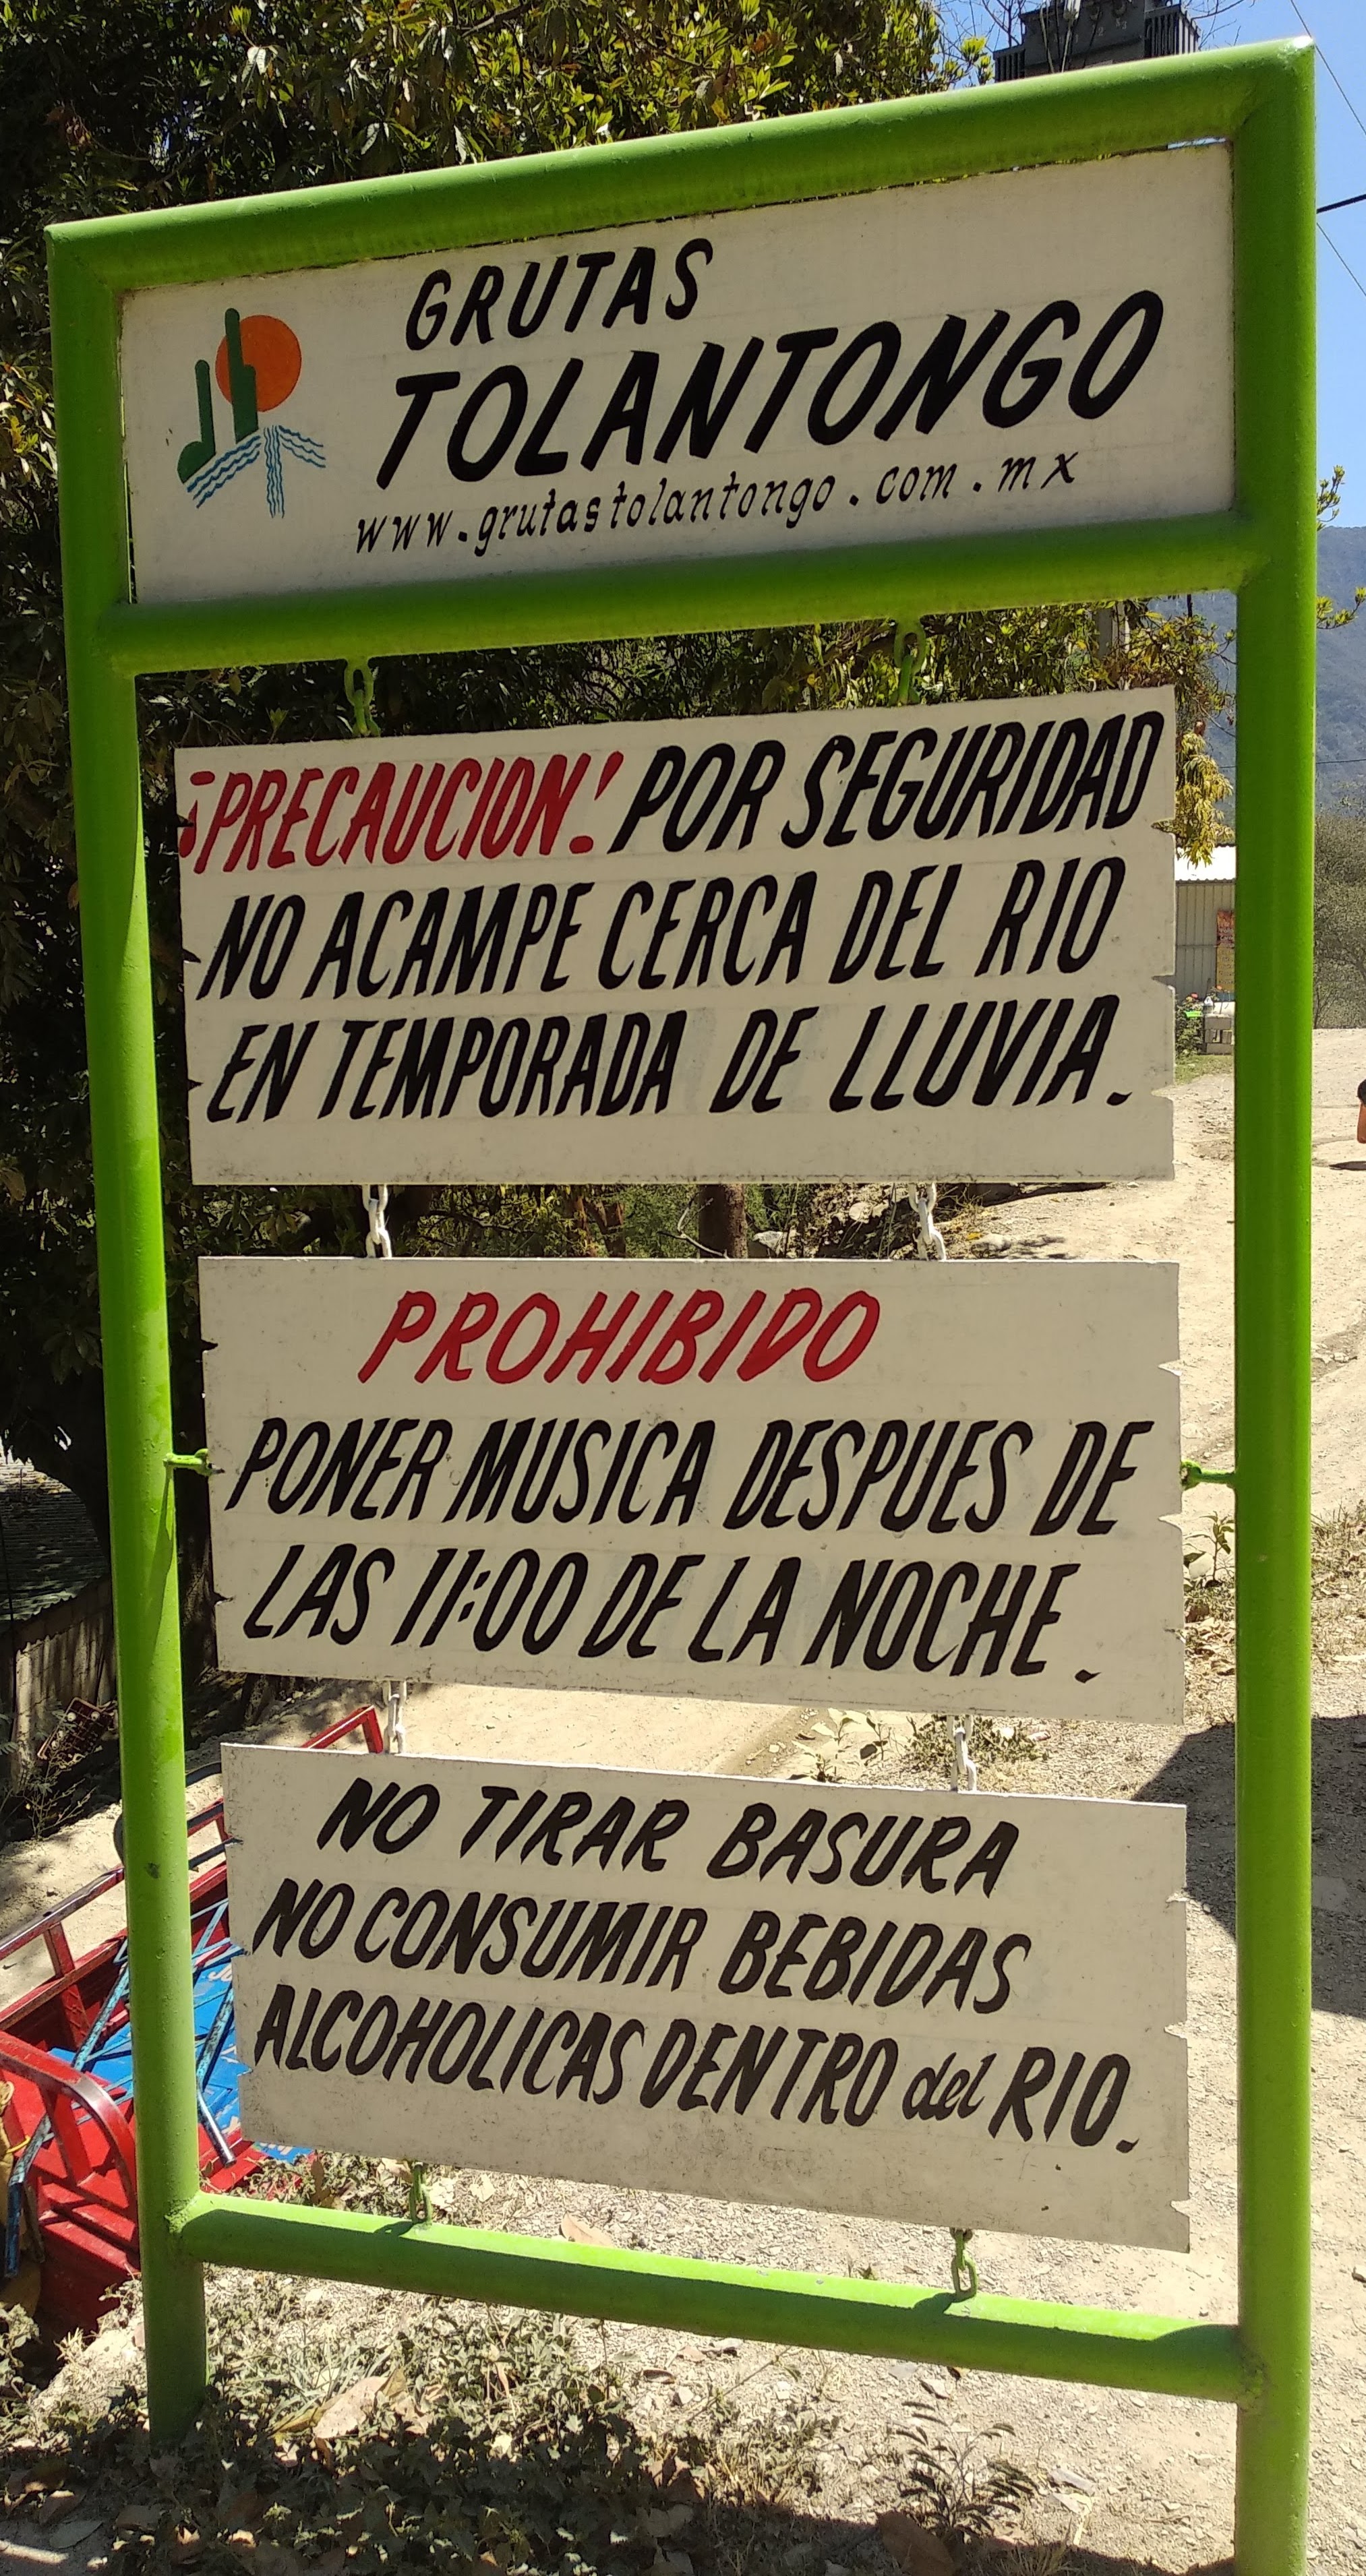 GRUTAS
TOLANTONGO
www.grutastolantongo.com.mx
¡PRECAUCION! POR SEGURIDAD
NO ACAMPE CERCA DEL RIO
EN TEMPORADA DE LLUVIA.
PROHIBIDO
PONER MUSICA DESPUES DE
LAS 11:00 DE LA NOCHE.
NO TIRAR BASURA
NO CONSUMIR BEBIDAS
ALCOHOLICAS DENTRO del RIO.